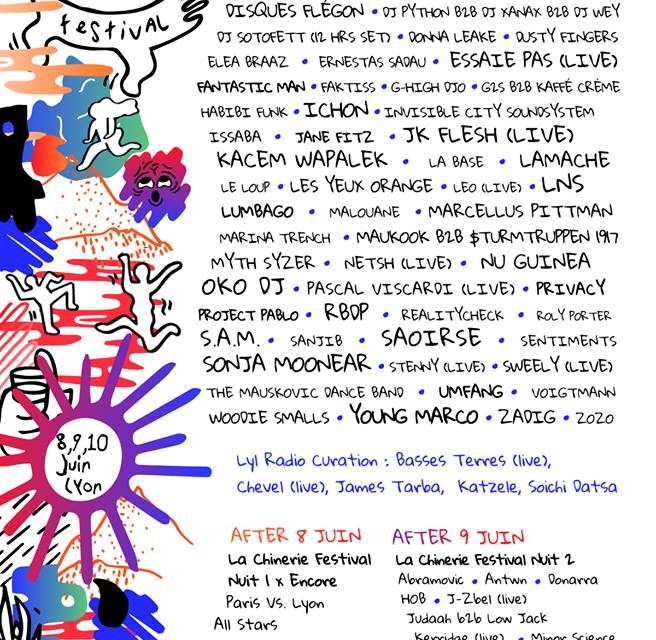 festival
DISQUES FLÉGON • DJ PYTHON B2B DJ XANAX B2B DJ WEY
DJ SOTOFETT (12 HRS SET) • DONNA LEAKE • DUSTY FINGERS
ELEA BRAAZ • ERNESTAS SADAU • ESSAIE PAS (LIVE)
FANTASTIC MAN • FAKTISS • G-HIGH DJO • G2S B2B KAFFÉ CRÈME
HABIBI FUNK • ICHON • INVISIBLE CITY SOUNDSYSTEM
ISSABA • JANE FITZ • JK FLESH (LIVE)
KACEM WAPALEK • LA BASE • LAMACHE
LE LOUP • LES YEUX ORANGE • LEO (LIVE) • LNS
LUMBAGO • MALOUANE • MARCELLUS PITTMAN
MARINA TRENCH • MAUKOOK B2B $TURMTRUPPEN 1917
MYTH SYZER • NETSH (LIVE) • NU GUINEA
OKO DJ • PASCAL VISCARDI (LIVE) • PRIVACY
PROJECT PABLO • RBDP • REALITYCHECK • ROLY PORTER
S.A.M. • SANJIB • SAOIRSE • SENTIMENTS
SONJA MOONEAR • STENNY (LIVE) • SWEELY (LIVE)
THE MAUSKOVIC DANCE BAND • UMFANG • VOIGTMANN
WOODIE SMALLS • YOUNG MARCO • ZADIG • 2020
8,9,10
Juin
Lyon
Lyl Radio Curation : Basses Terres (live),
Chevel (live), James Tarba, Katzele, Soichi Datsa
AFTER 8 JUIN
La Chinerie Festival
Nuit 1 x Encore
Paris Vs. Lyon
All Stars
AFTER 9 JUIN
La Chinerie Festival Nuit 2
Abramovic • Antwn • Donarra
HOB • J-Zbel (live)
Judaah b2b Low Jack
Kerridge (live) • Minor Science